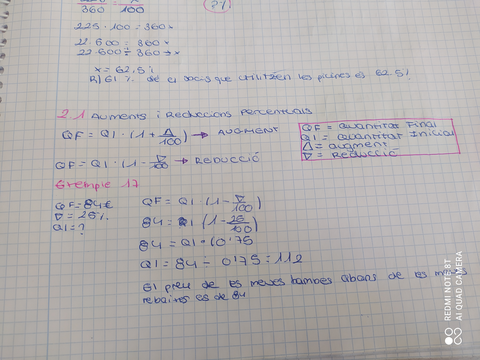 360 100
(27)
225 · 100 = 360x
22.500 = 360x
22.500 ÷ 360 = x
x = 62.5%
R/ El % de socis que utilitzen les piscines és 62.5%
2.1 Augments i Reduccions percentuals
QF = QI · (1 + Δ/100) → AUGMENT
QF = QI · (1 - ∇/100) → REDUCCIÓ
QF = Quantitat Final
QI = Quantitat Inicial
Δ = augment
∇ = Reducció
Exemple 17
QF = 84€
∇ = 25%
QI = ?
QF = QI · (1 - ∇/100)
84 = QI · (1 - 25/100)
84 = QI · (0'75
QI = 84 ÷ 0'75 = 112
El preu de les meves bambes abans de les
rebaixes es de 84
REDMI NOTE 8T
AI QUAD CAMERA